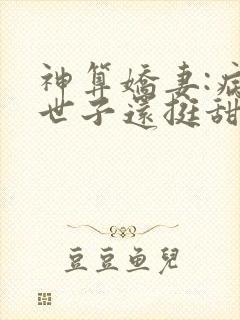 神算嬌妻:病
世子還挺甜
豆豆魚兒